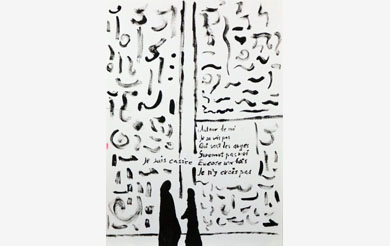 Autour de moi
Je ne vois pas
Qui sont les anges
Sûrement pas moi
Je suis cassée
Encore une fois
Je n'y crois pas